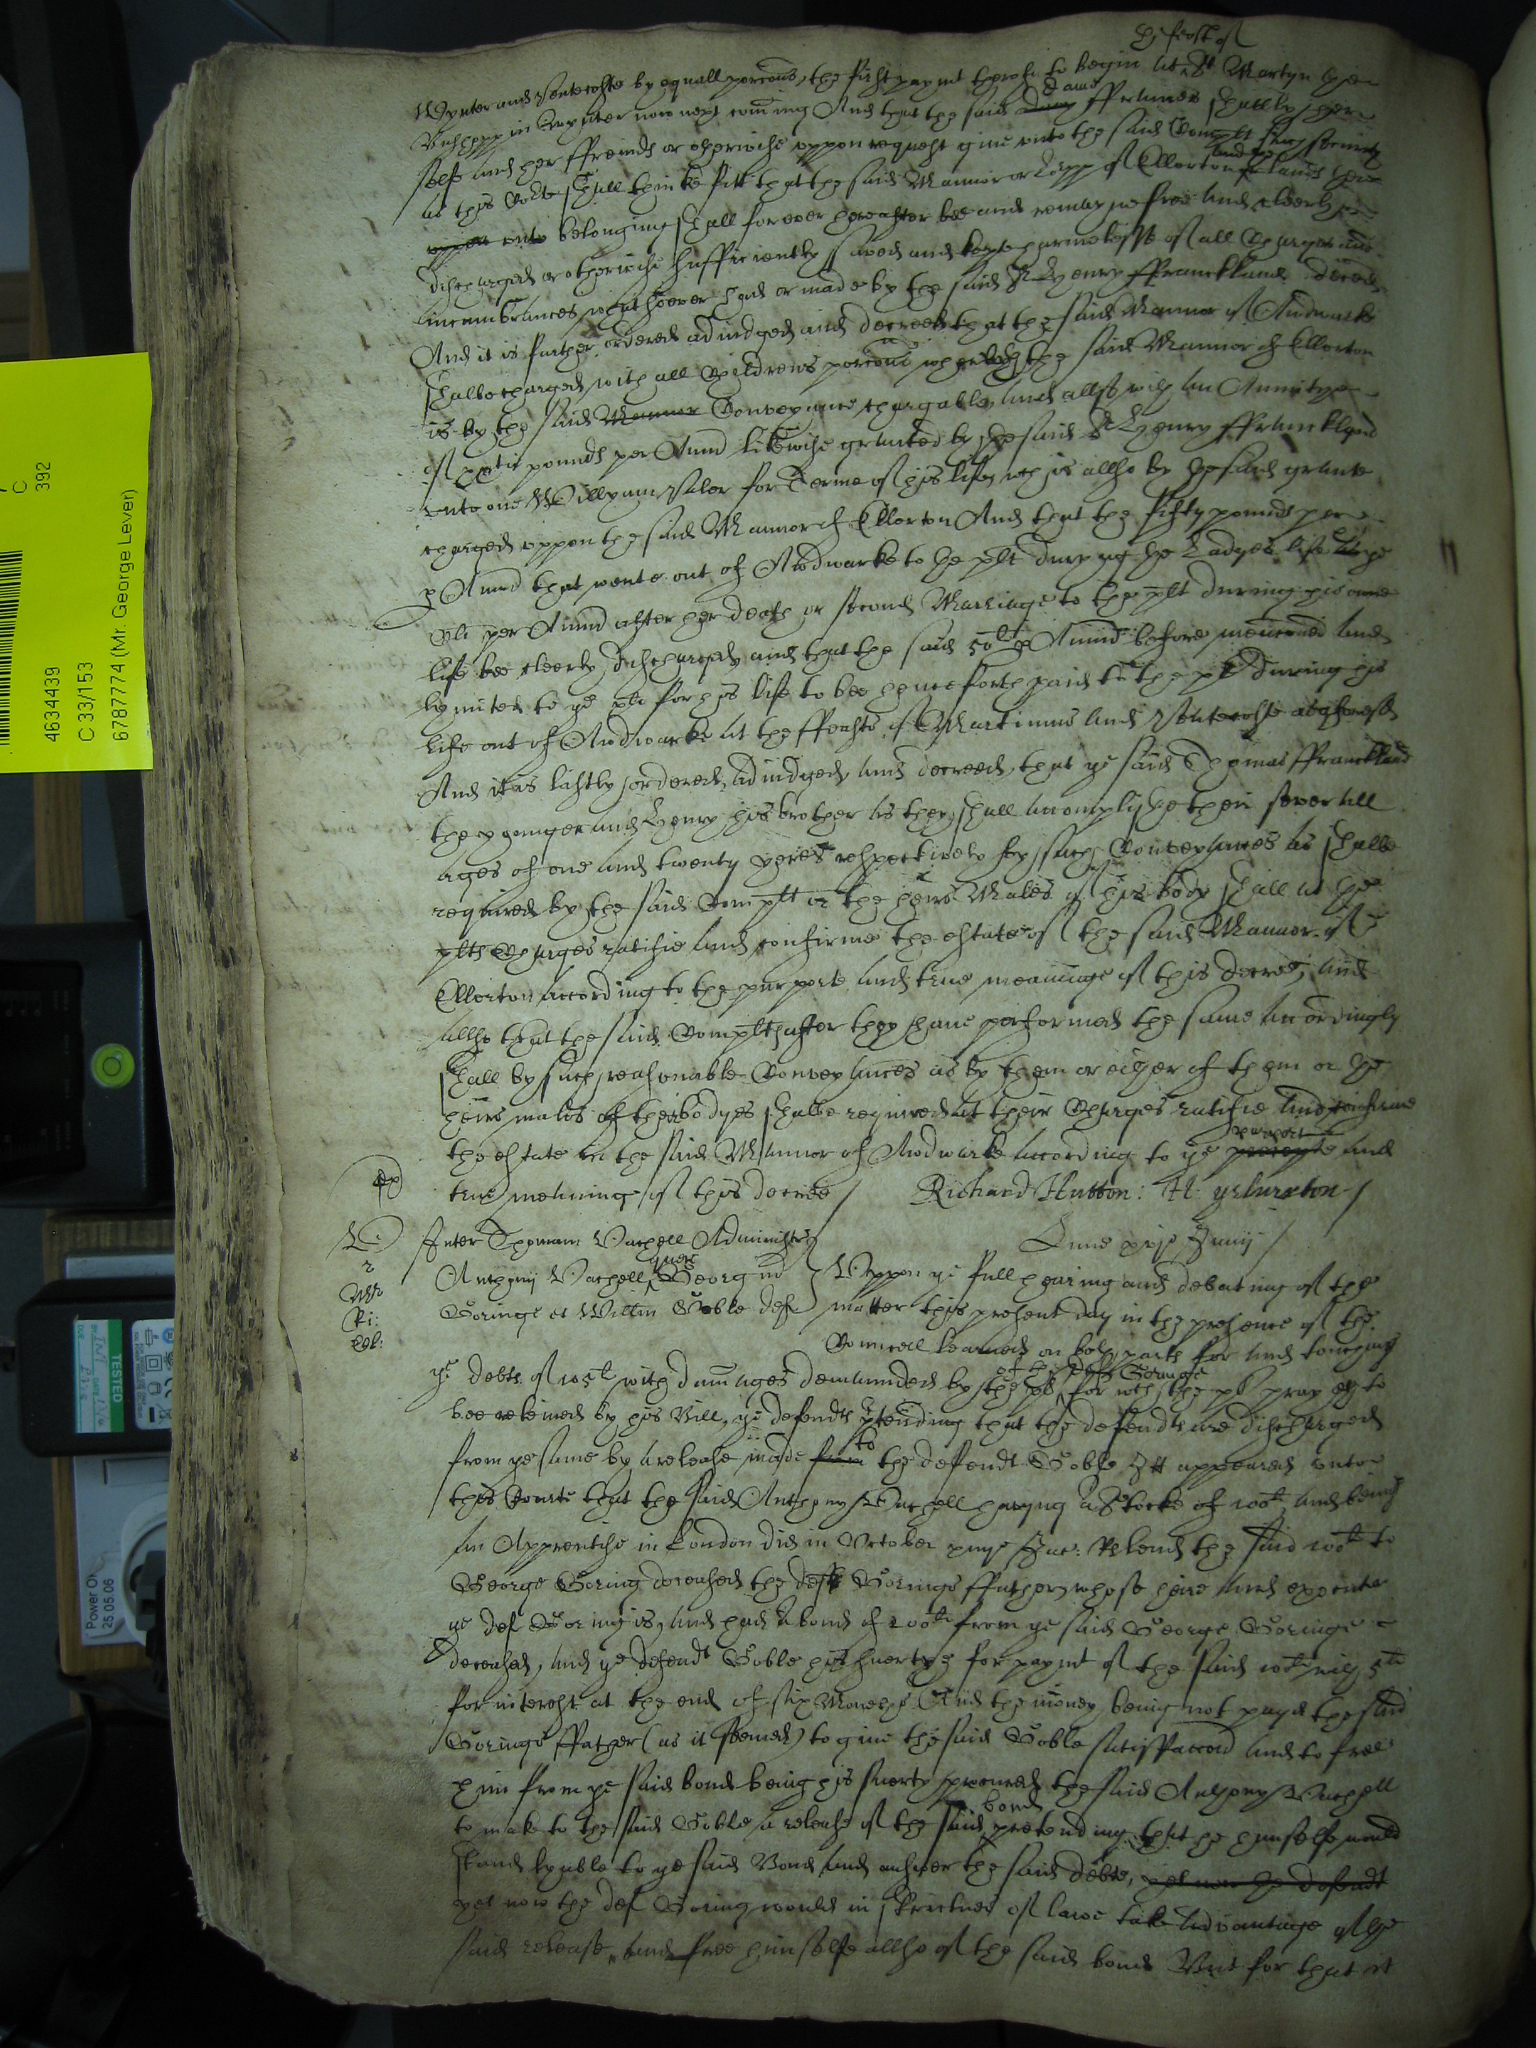 ye feast of
Wynter and Pentecoste by equall porcons, the first paymt therof to begin at St Martyn the
Busshopp in Wynter now next coming And that the said Dame ffrances shall by her
self and her ffreinds or otherwise uppon request give unto the said Complt such securitie
as this Court shall thinke fitt that the said Mannor or Lopp of Ellerton and the lands there
unto belonging shall for ever hereafter bee and remayne free and cleerly
discharged or otherwise sufficiently saved and kepte harmelesse of all Charges and
incumbrances whatsoever had or made by the said Sr Henry ffranckland deceased
And it is further ordered adiudged and decreed that the said Mannor of Awdwarke
shalbe charged with all Childrens porcons wherwth the said Mannor of Ellerton
is by the said Mannor Conveyance chargable, and allso with an Annitye
of pounds per Annu likewise graunted by the said Sr Henry ffranckland
unto one Willyam for Terme of his life, wch is allso by the said graunte
charged uppon the said Mannor of Ellerton And that the fifty pounds per
p Annu that wente out of Awdwarke to the plt during the Ladyes life
per Annu after her death or second Marriage to the plt during his owne
life bee cleerly discharged, and that the said 50l p Annu before mencioned and
lymited to ye plt for his life to bee henceforth paid to the plt during his
life out of Awdwarke at the ffeasts of Martinms and Pentecoste aforesaid
And it is lastly ordered, adiudged, and decreed, that ye said Thomas ffranckland
the younger and Henry his brother as they shall accomplishe their severall
ages of one and twenty yeres respectively by such Conveyances as shalbe
required by the said Complt or the heires Males of his body shall at the
plts Charges ratifie and confirme the estate of the said Mannor of
Ellerton according to the purporte and true meaninge of this decree, and
allso that the said Complt after they have performed the same accordingly
shall by such reasonable Conveyances as by them or either of them or the
heires males of their bodyes shalbe required at their Charges ratifie and confirme
the estate in the said Mannor of Awdwarke according to ye purport and
true meaning of this decree / Richard Hutton: H: yelverton /
Inter Thomam Vachell Administr
Lune Junij
Anthonij Vachell quer Georgiu
Uppon ye full hearing and debating of the
Goringe et Willm Goble def
matter this present day in the presence of the
Councell learned on both parts for and touching
ye debte of 105l with dammages demaunded by the plt of the deft Goringe for wch the plt prayeth to
bee releived by his Bill, ye defendts ptending that the defendts are discharged
from ye same by a release made from to the defendt Goble It appeared unto
this Courte that the said Anthony Vachell having a Stocke of 100l and being
an Apprentise in London did in October Jac: Rs lend the said 100l to
George Goring deceased the deft Gorings ffather, whose heire and executor
ye def Goring is, and had a bond of 200l from ye said George Goringe
deceased, and ye defendt Goble his suertye for paymt of the said 100l with 5l
for interest at the end of six Moneths And the money being not payd the said
Gorings ffather (as it seemed) to give the said Goble satisfaccon and to free
him from ye said bond being his suerty procured the said Anthony Vachell
to make to the said Goble a release of the said bond pretending that he himselfe would
stand lyable to ye said Bond and answer the said debte, yet now the defendt
yet now the def Goring would in strictnes of lawe take advantage of the
said release, and free himselfe allso of the said bond But for that it
4634439
C 33/153
6787774 (Mr. George Lever)
C
392
TESTED
Power O
25.05.06